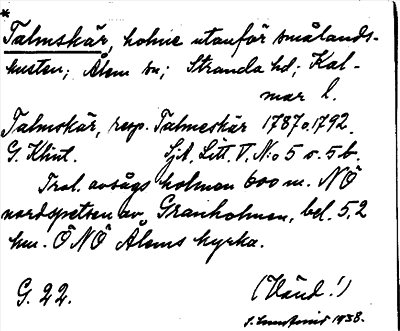 *
Talmskär, holme utanför smålands-
kusten; Ålem sn; Stranda hd; Kal-
mar l.
Talmskär, resp. Talmeskär 1787 o. 1792.
G. Klint. SjA, Litt V, N:o 5 o. 5 b.
Trol. avsågs holmen 600 m. NÖ
nordspetsen av Granholmen, bel. 5,2
km. ÖNÖ Ålems kyrka.
G. 22. (Vänd!)
1938.